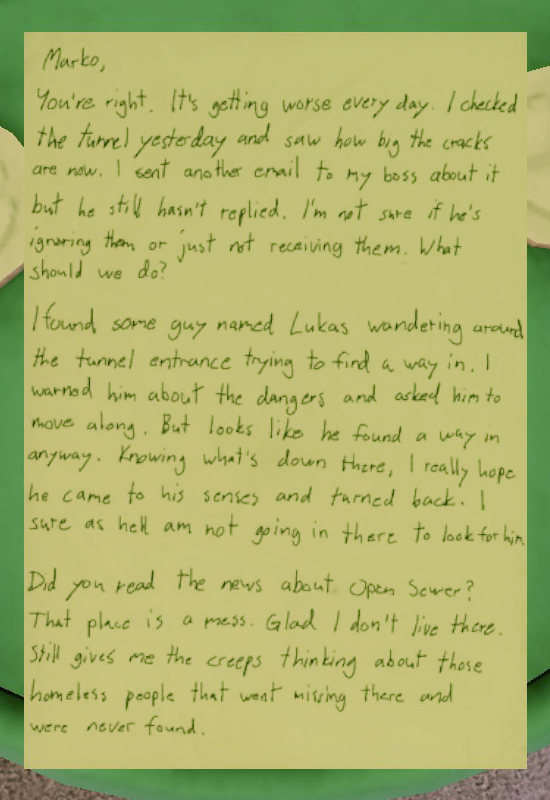 Marko,
You're right. It's getting worse every day. I checked
the tunnel yesterday and saw how big the cracks
are now. I sent another email to my boss about it
but he still hasn't replied. I'm not sure if he's
ignoring them or just not receiving them. What
should we do?
I found some guy named Lukas wandering around
the tunnel entrance trying to find a way in. I
warned him about the dangers and asked him to
move along. But looks like he found a way in
anyway. Knowing what's down there, I really hope
he came to his senses and turned back. I
sure as hell am not going in there to look for him.
Did you read the news about Open Sewer?
That place is a mess. Glad I don't live there.
Still gives me the creeps thinking about those
homeless people that went missing there and
were never found.